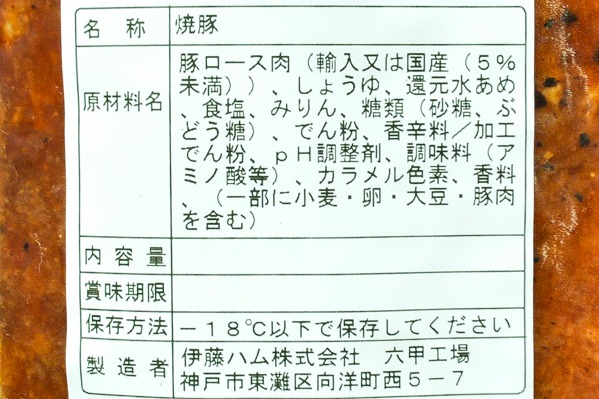 名称 焼豚
原材料名 豚ロース肉（輸入又は国産（５％
未満））、しょうゆ、還元水あめ
、食塩、みりん、糖類（砂糖、ぶ
どう糖）、でん粉、香辛料／加工
でん粉、ｐＨ調整剤、調味料（ア
ミノ酸等）、カラメル色素、香料
、（一部に小麦・卵・大豆・豚肉
を含む）
内容量
賞味期限
保存方法 －１８℃以下で保存してください
製造者 伊藤ハム株式会社　六甲工場
神戸市東灘区向洋町西５－７